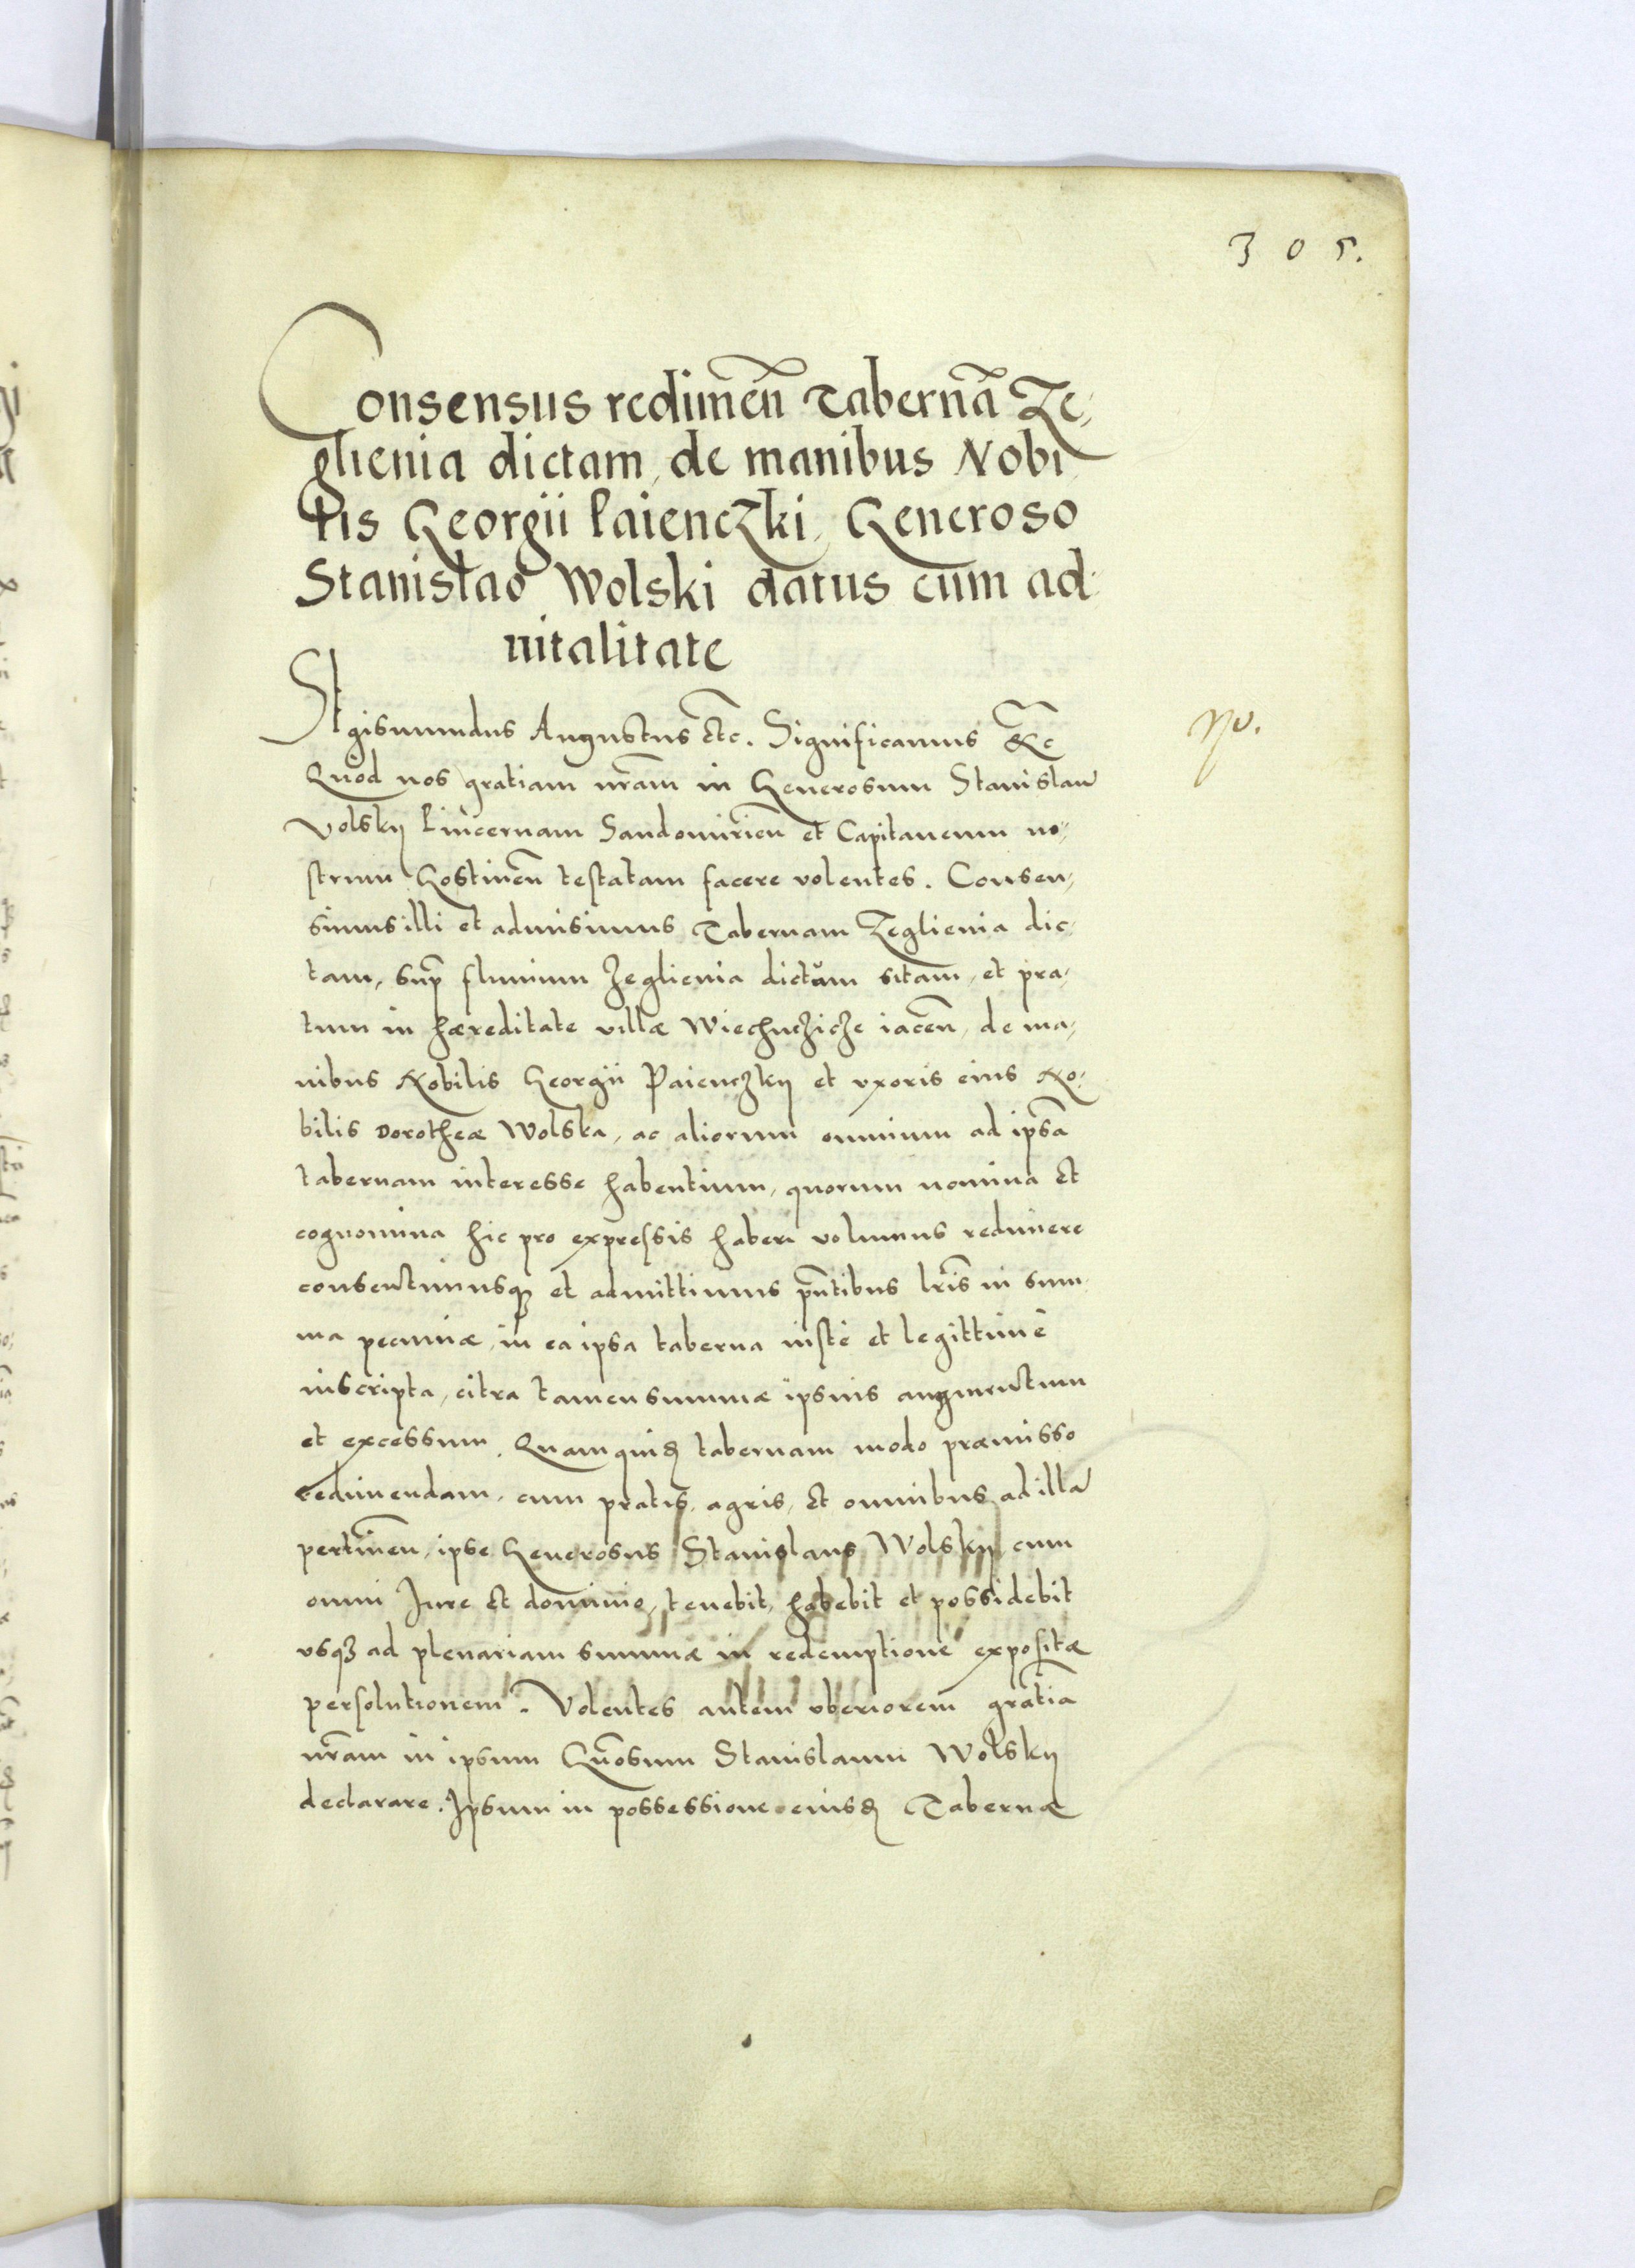 305.
Consensus redimen̄ Tabernā Ze,
glienia dictam, de manibus Nobi
lis Georgii Paienczki, Generoso
Stanislao Wolski datus cum ad:
uitalitate
Sigismundus Augustus etc. Significamus &c
Quod nos gratiam nr̄am in Generosum Stanislaū
Volskij Pincernam Sandomirien̄ et Capitaneum no,,
strum Gostinen̄ testatam facere volentes. Consen,
simus illi et admisimus Tabernam Zeglienia dic,
tam, sup̄ fluuium Zeglienia dictum sitam, et pra,
tum in hæreditate villæ Wiechuczicze iacen̄, de ma,
nibus Nobilis Georgii Paienczkij et vxoris eius No,
bilis Dorotheæ Wolska, ac aliorum omnium ad ipsā
tabernam interesse habentium, quorum nomina et
cognomina hic pro expressis haberi volumus redimere
consentimusqȝ et admittimus pn̄tibus lr̄is in sum
ma pecuniæ, in ea ipsa taberna iustè et legittimè
inscripta, citra tamen summæ ipsius augmentum
et excessum. Quamquidē tabernam modo præmisso
redimendam, cum pratis, agris, et omnibus ad illā
pertinen̄, ipse Generosus Stanislaus Wolskij cum
omni Jure et dominio, tenebit, habebit et possidebit
vsqȝ ad plenariam summæ in redemptione expositæ
persolutionem. Volentes autem vberiorem gratiā
nr̄am in ipsum Gn̄osum Stanislaum Wolskij
declarare. Ipsum in possessione eiusdē Tabernæ